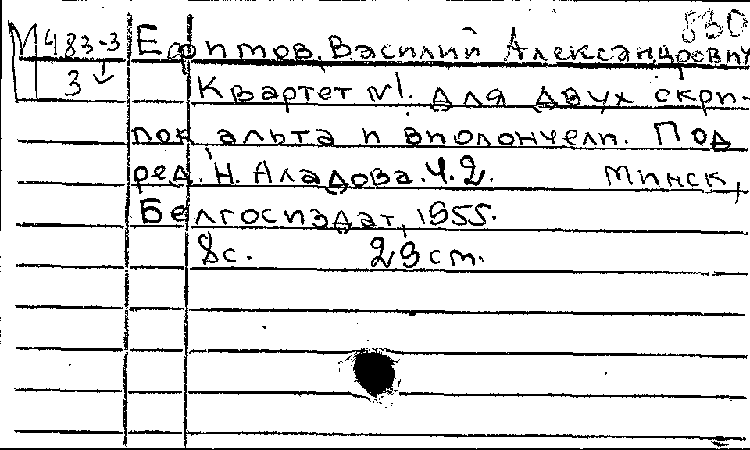 530
М 483-3 Ефимов, Василий Александрович
3 Квартет №1. Для двух скри-
пок альта и виолончели. Под
ред. Н. Аладова. Ч.2. Минск,
Белгосиздат, 1955.
8с. 29 cm.